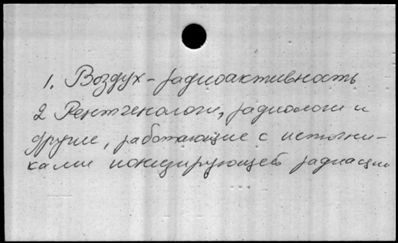 1. Воздух - радиоактивность
2 Рентгенологи, радиологи и
другие, работающие с источни-
ками ионизирующей радиации